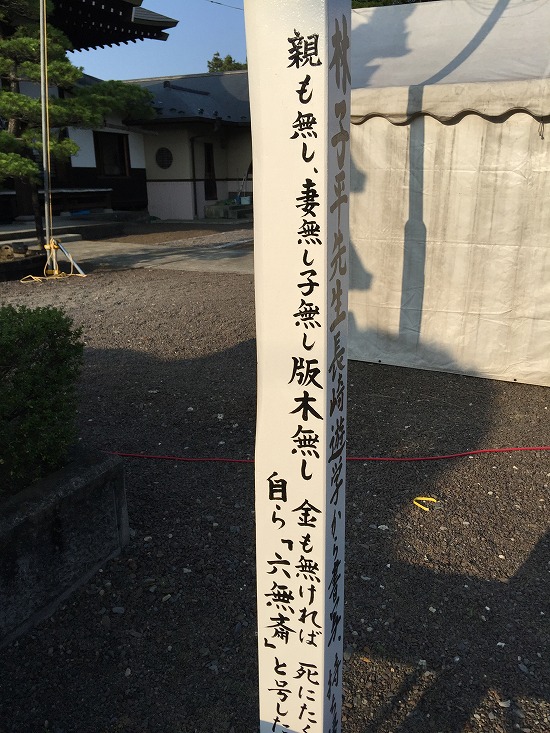 親も無し、妻無し子無し版木無し 金も無ければ 死にたく
自ら「六無斎」と号した
林子平先生長崎遊学から